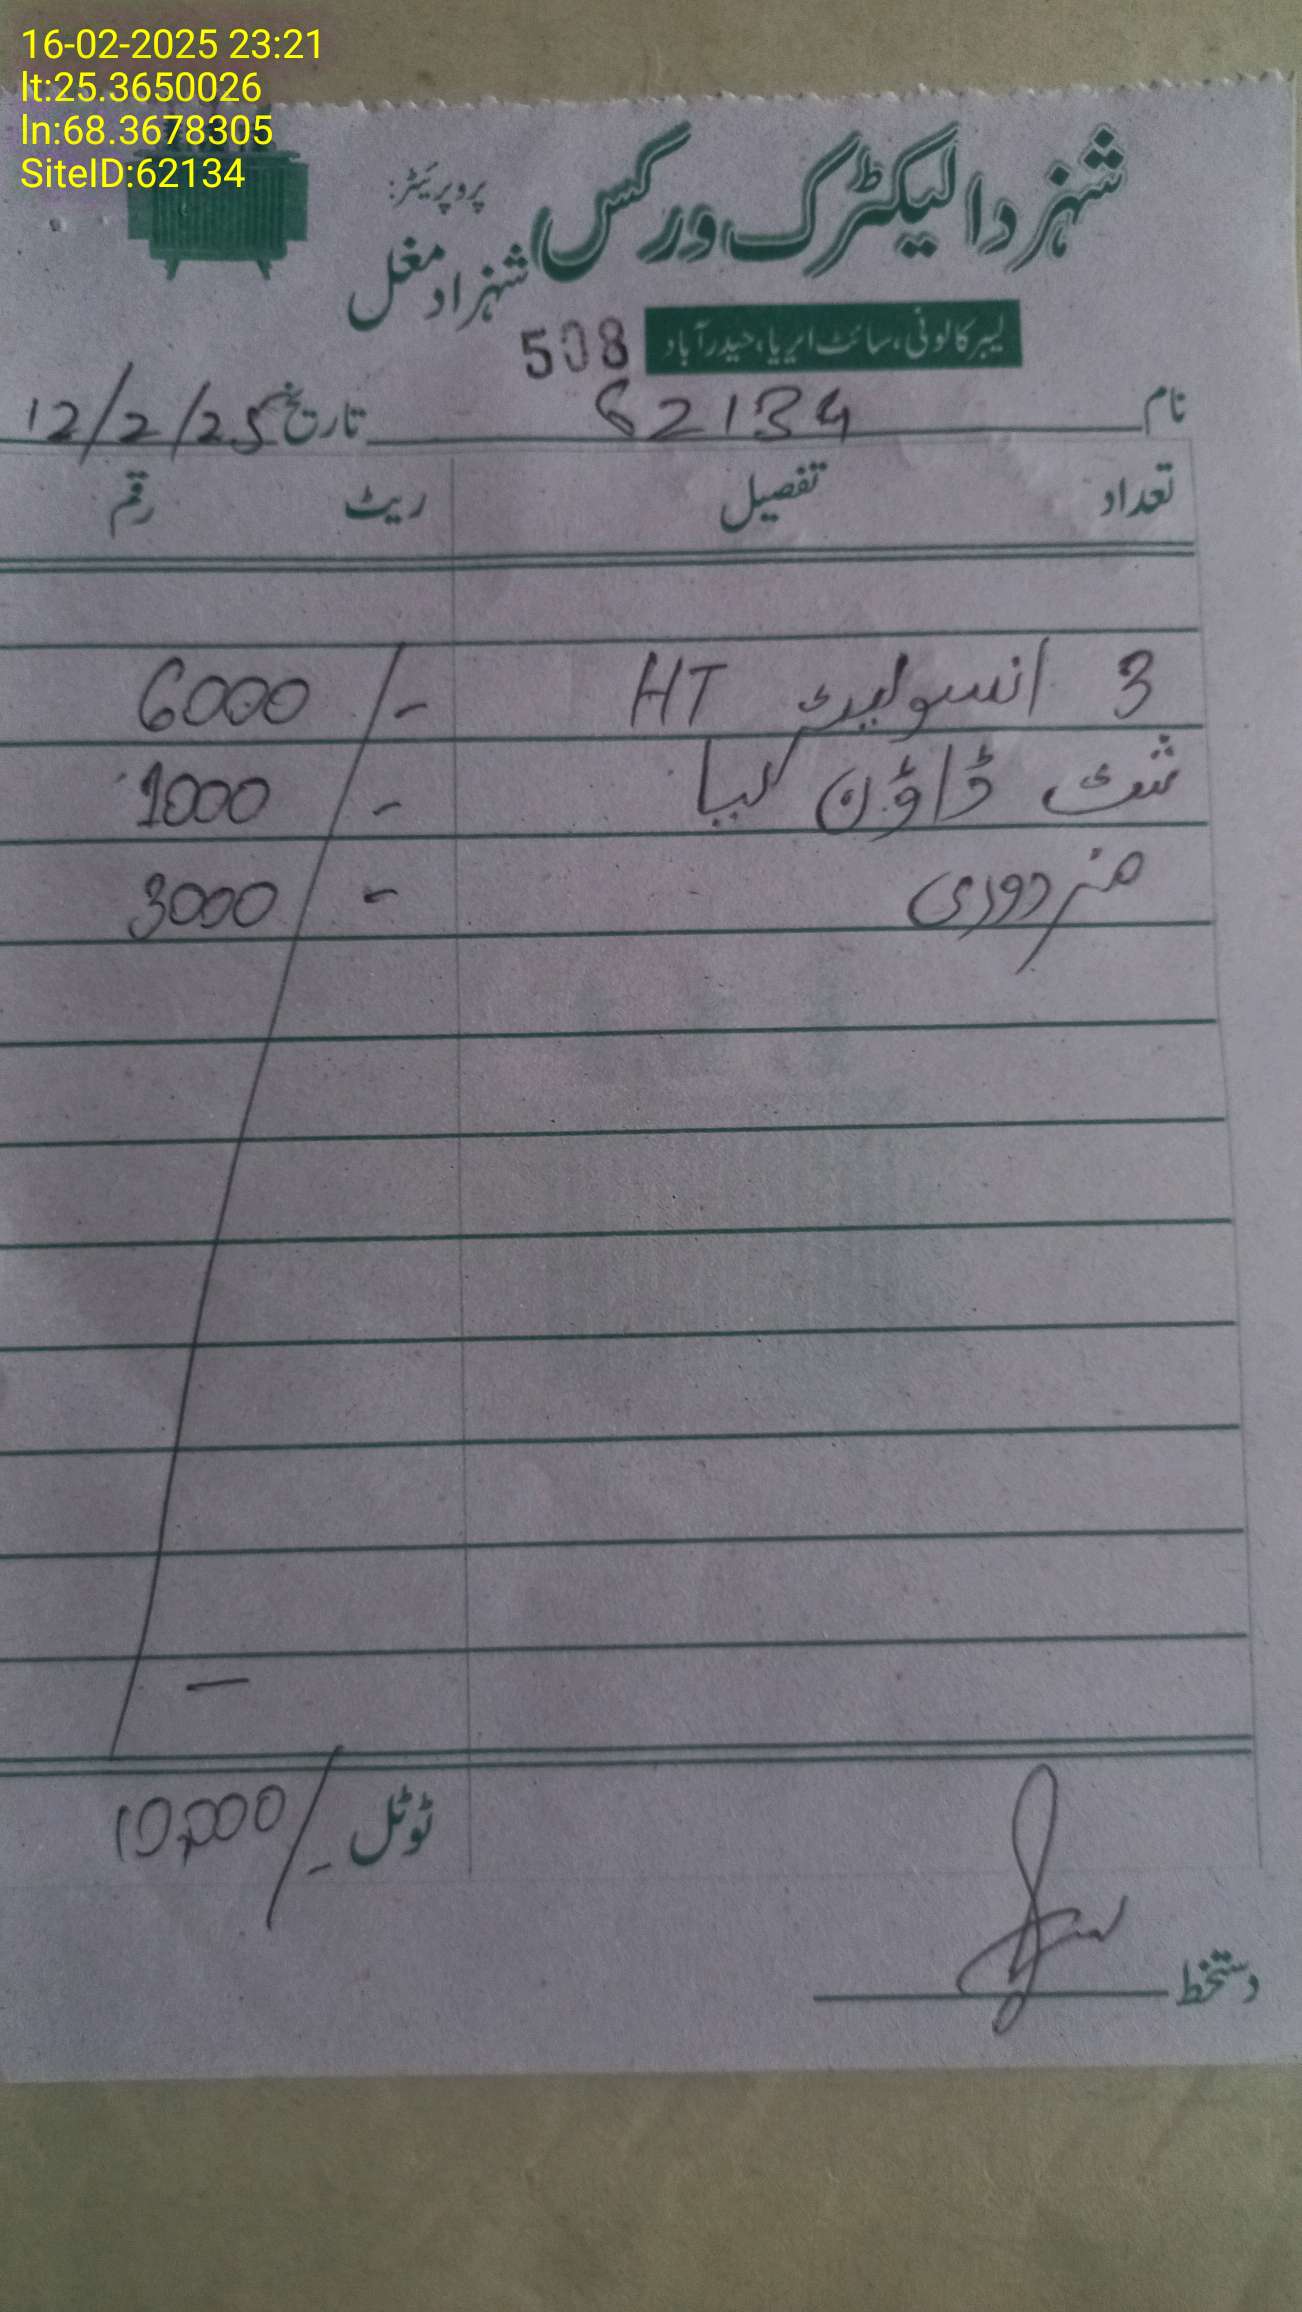 16-02-2025 23:21
lt:25.3650026
ln:68.3678305
SiteID:62134
شہزادالیکٹرک ورکس
پروپرائیٹر:
شہزاد مغل
لیبر کالونی، سائٹ ایریا، حیدرآباد
508
نام 62134 تاریخ 12/2/25
تعداد تفصیل ریٹ رقم
3 انسولیٹر HT 6000/-
شٹ ڈاؤن کیا 1000/-
مزدوری 3000/-
ٹوٹل 10,000/-
دستخط